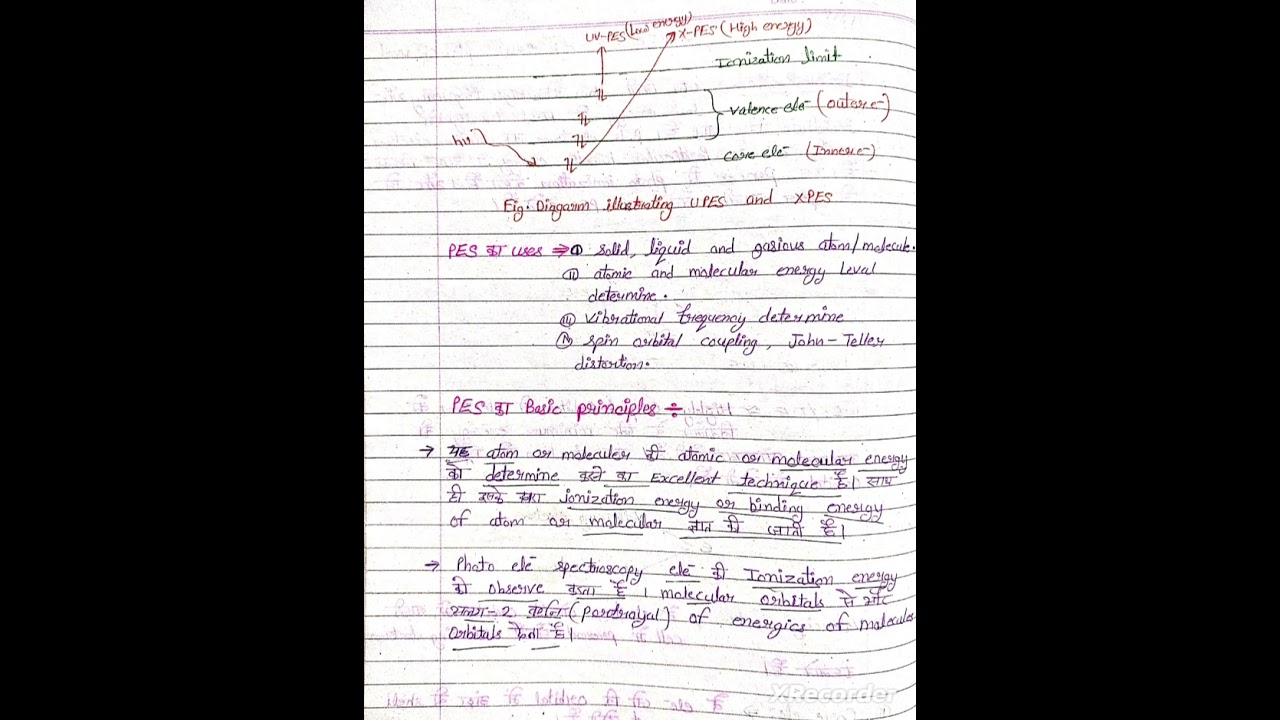 UV-PES (Low energy) X-PES (High energy)
Ionization limit
valence ele- (Outer e-)
hν
core ele- (Inner e-)
Fig. Diagarm illustrating UPES and XPES
PES का uses ⇒ (i) Solid, liquid and gasious atom/molecule.
(ii) atomic and molecular energy level
determine.
(iii) vibrational frequency determine
(iv) spin orbital coupling, John-Teller
distortion.
PES का Basic principles ÷
→ यह atom or molecules की atomic or molecular energy
को determine करने का Excellent technique है। साथ
ही इसके ionization energy or binding energy
of atom or molecular ज्ञात की जाती है।
→ Photo ele- spectroscopy ele- की Ionization energy
को observe करता है। molecular orbitals से
(pordrayal) of energies of molecules
orbitals देता है।
XRecorder